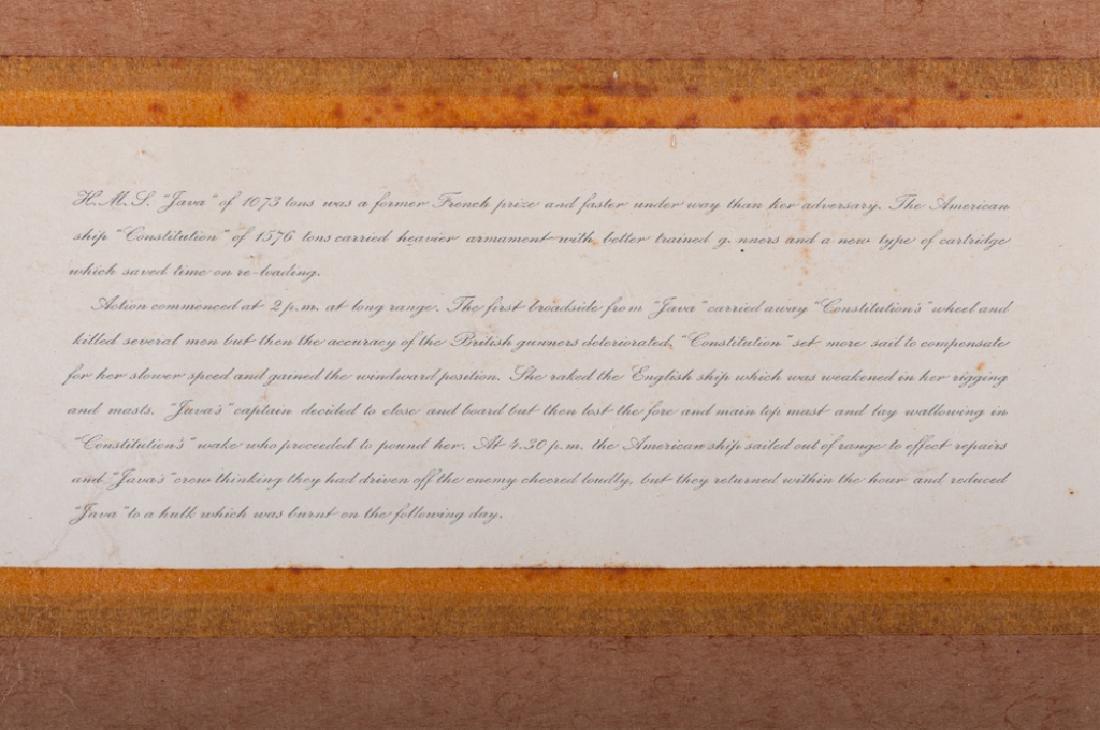 H.M.S. "Java" of 1073 tons was a former French prize and faster under way than her adversary. The American
ship "Constitution" of 1576 tons carried heavier armament with better trained g. nners and a new type of cartridge
which saved time on re-loading.
Action commenced at 2 p.m. at long range. The first broadside from "Java" carried away "Constitution's" wheel and
killed several men but then the accuracy of the British gunners deteriorated. "Constitution" set more sail to compensate
for her slower speed and gained the windward position. She raked the English ship which was weakened in her rigging
and masts. "Java's" captain decided to close and board but then lost the fore and main top mast and lay wallowing in
"Constitution's" wake who proceeded to pound her. At 4.30 p.m. the American ship sailed out of range to effect repairs
and "Java's" crew thinking they had driven off the enemy cheered loudly, but they returned within the hour and reduced
"Java" to a hulk which was burnt on the following day.